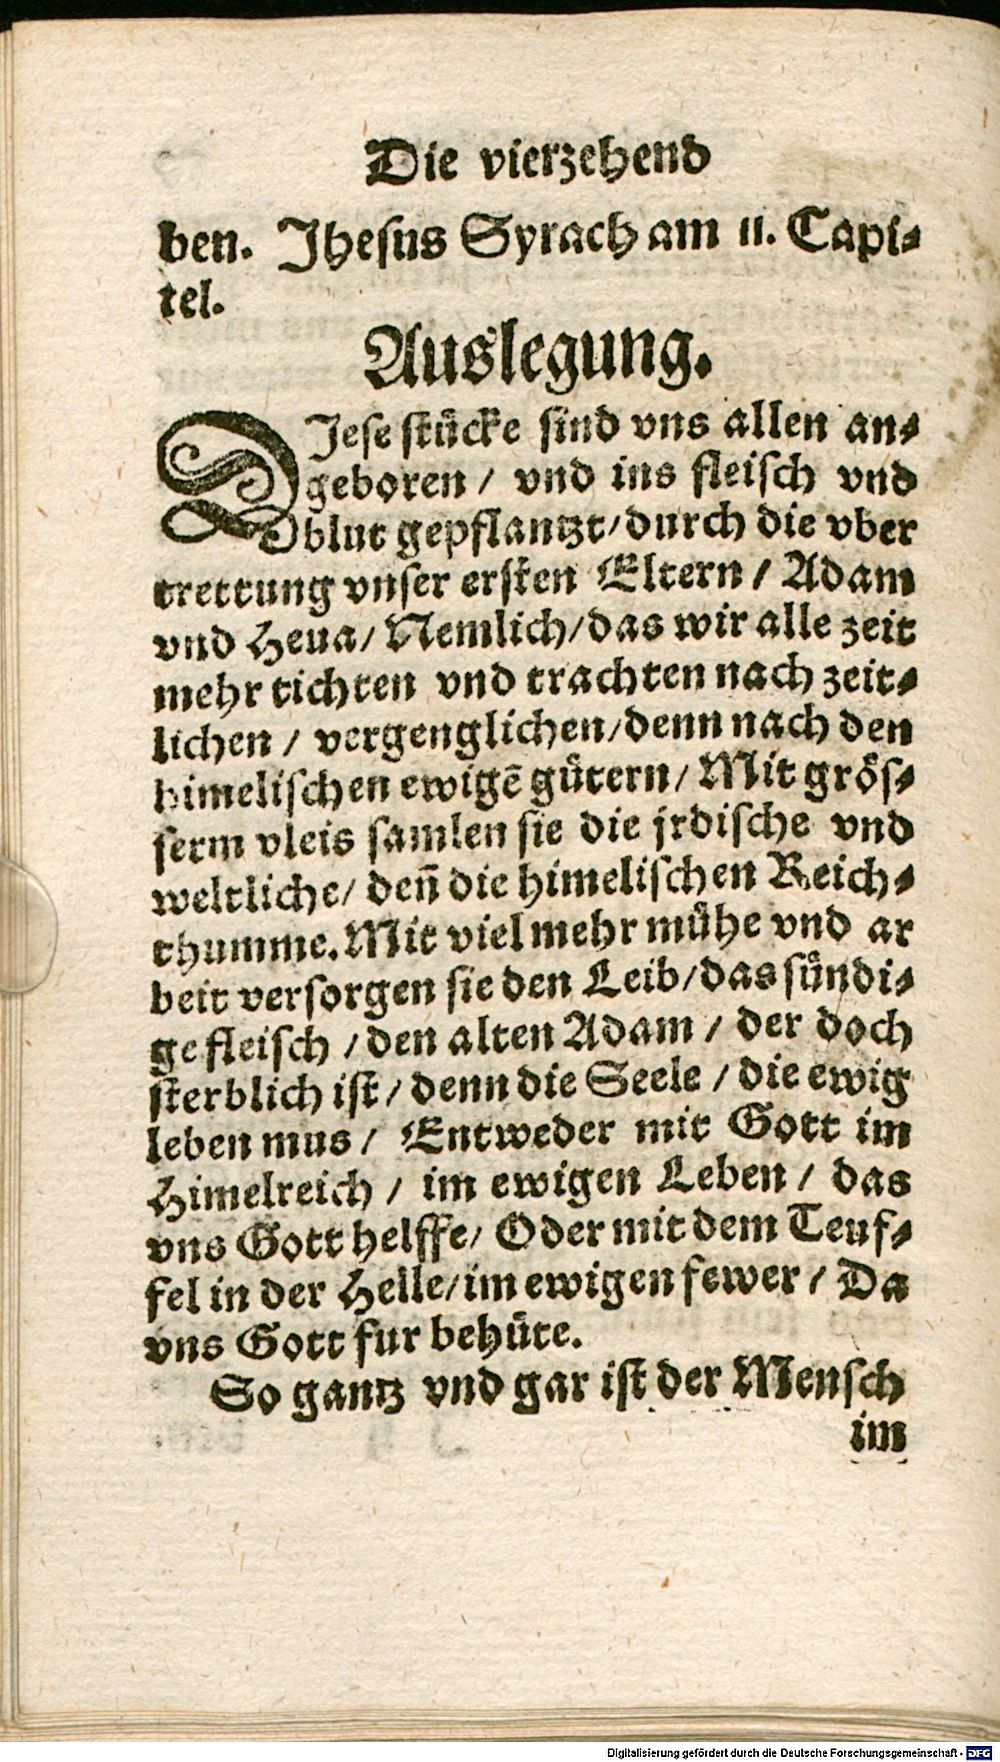 Die vierzehend
ben. Jhesus Syrach am 11. Capi-
tel.
Auslegung.
DJese stuͤcke sind vns allen an-
geboren / vnd ins fleisch vnd
blut gepflantzt/durch die vber
trettung vnser ersten Eltern / Adam
vnd Heua/ Nemlich/das wir alle zeit
mehr tichten vnd trachten nach zeit-
lichen / vergenglichen/denn nach den
himelischen ewigē guͤtern/ Mit groͤs-
serm vleis samlen sie die jrdische vnd
weltliche/ deñ die himelischen Reich-
thumme. Mit viel mehr muͤhe vnd ar
beit versorgen sie den Leib/das suͤndi-
ge fleisch /den alten Adam / der doch
sterblich ist/ denn die Seele / die ewig
leben mus/ Entweder mit Gott im
Himelreich / im ewigen Leben / das
vns Gott helffe/ Oder mit dem Teuf-
fel in der Helle/im ewigen fewer / Da
vns Gott fur behuͤte.
So gantz vnd gar ist der Mensch
im
Digitalisierung gefördert durch die Deutsche Forschungsgemeinschaft - DFG